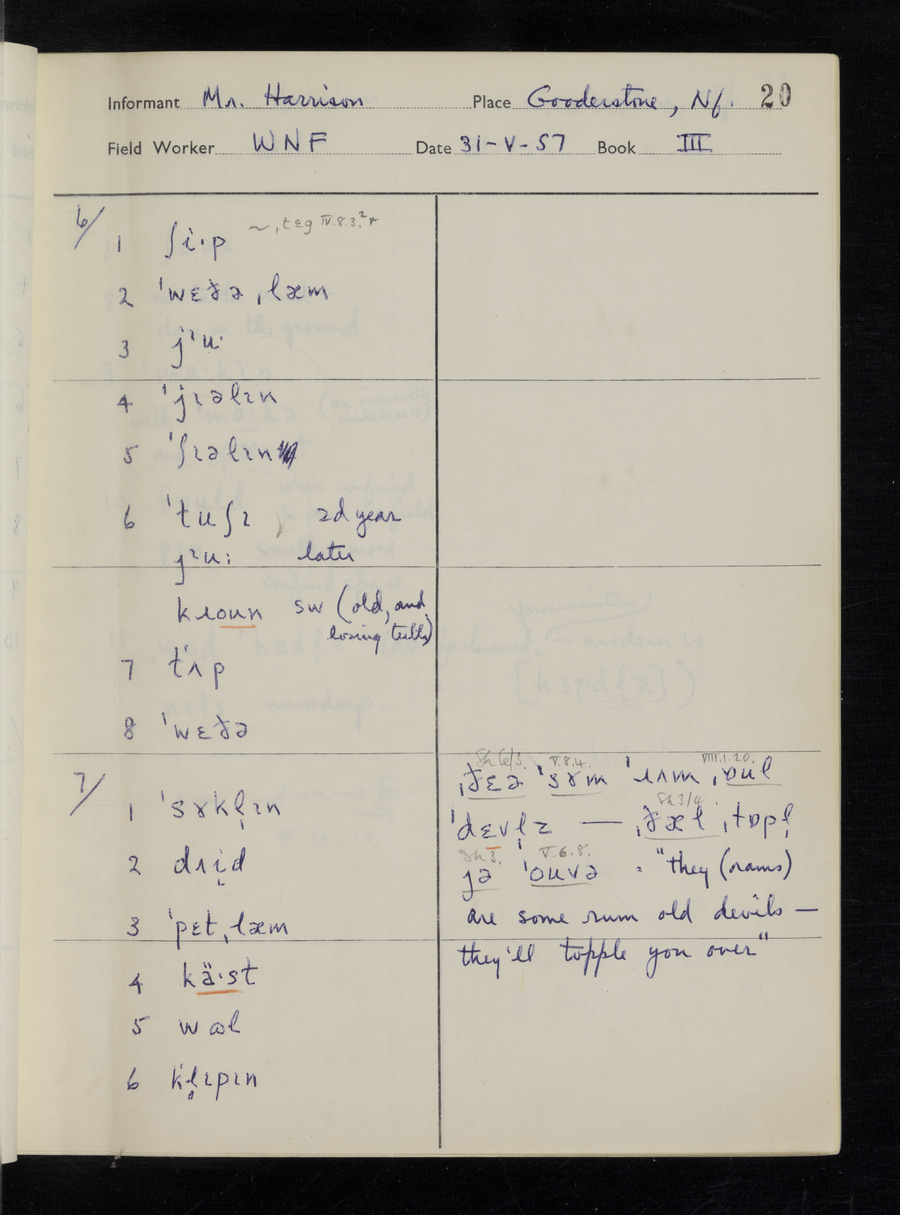 Informant Mr. Harrison Place Gooderstone, Nf. 20
Field Worker WNF Date 31-V-57 Book III
6/ 1 ʃi·p ~ ˌtɛg IV.8.3.²
2 ˈwɛðə ˌlæm
3 jᶦu·
4 ˈjɪəlɪn
5 ˈʃɪəlɪn
6 ˈtuʃɪ 2d year
jᶦu: later
kɹoun sw (old, and
losing teeth)
7 tʌp
8 ˈwɛðə
7/ 1 ˈsɤkl̥ɪn
2 dɹid
3 ˈpɛt ˌlæm
4 kä·st
5 wɷl
6 kl̥ɪpɪn
Sh 6/3. V.8.4. VIII.1.20.
ˌðɛə ˈsɤm ˈɹʌm ˌoul
Sh 3/4
ˈdɛvl̩z — ˌðæl ˌtɒpl̩
Sh 3. V.6.8.
jə ˈouvə : "they (rams)
are some rum old devils —
they'll topple you over"